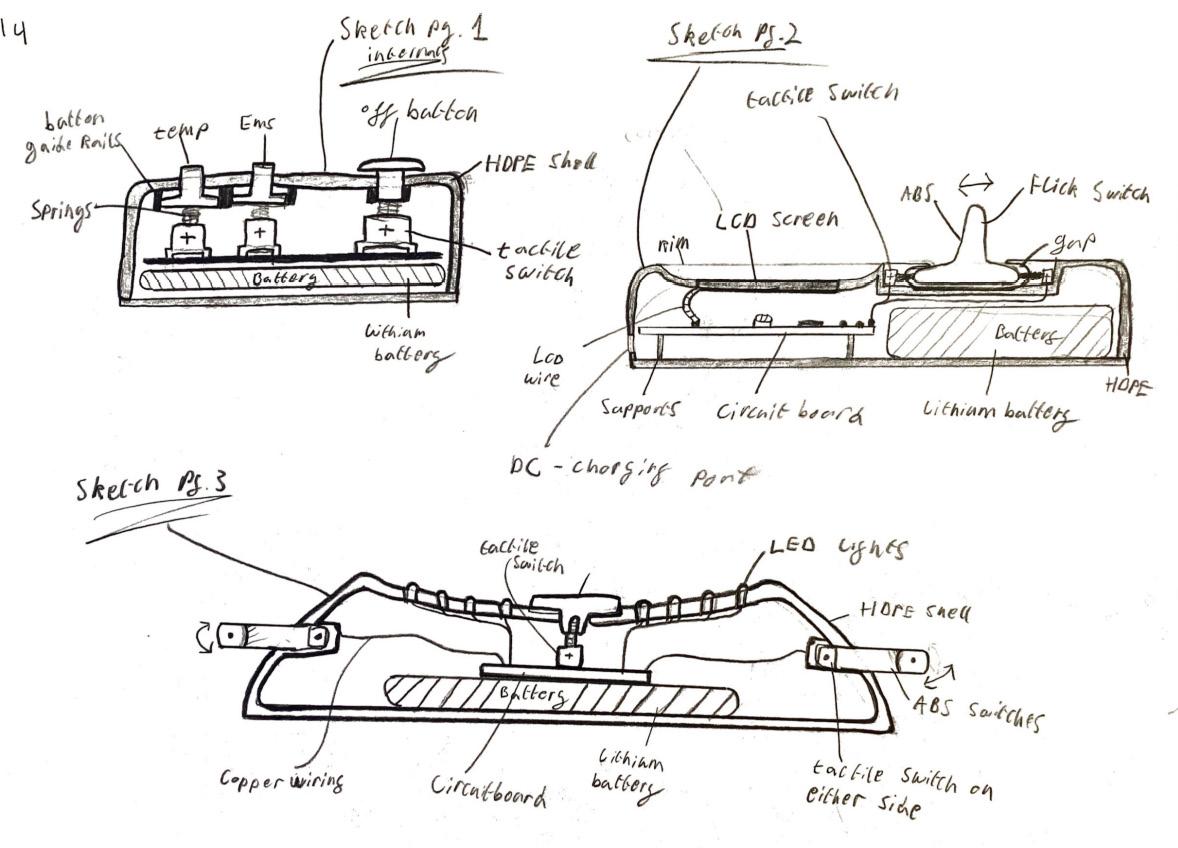 14
Sketch pg. 1
internals
button
guide Rails
temp
Ems
off button
HDPE Shell
Springs
tactile
switch
Battery
lithium
battery
Sketch Pg. 2
tactile Switch
ABS
Flick Switch
LCD screen
Rim
gap
Battery
Lcd
wire
Supports
Circuit board
Lithium battery
HDPE
DC - charging port
Sketch Pg. 3
tactile
Switch
LED lights
HDPE Shell
Battery
ABS Switches
Copper wiring
Circuitboard
Lithium
battery
tactile Switch on
either side